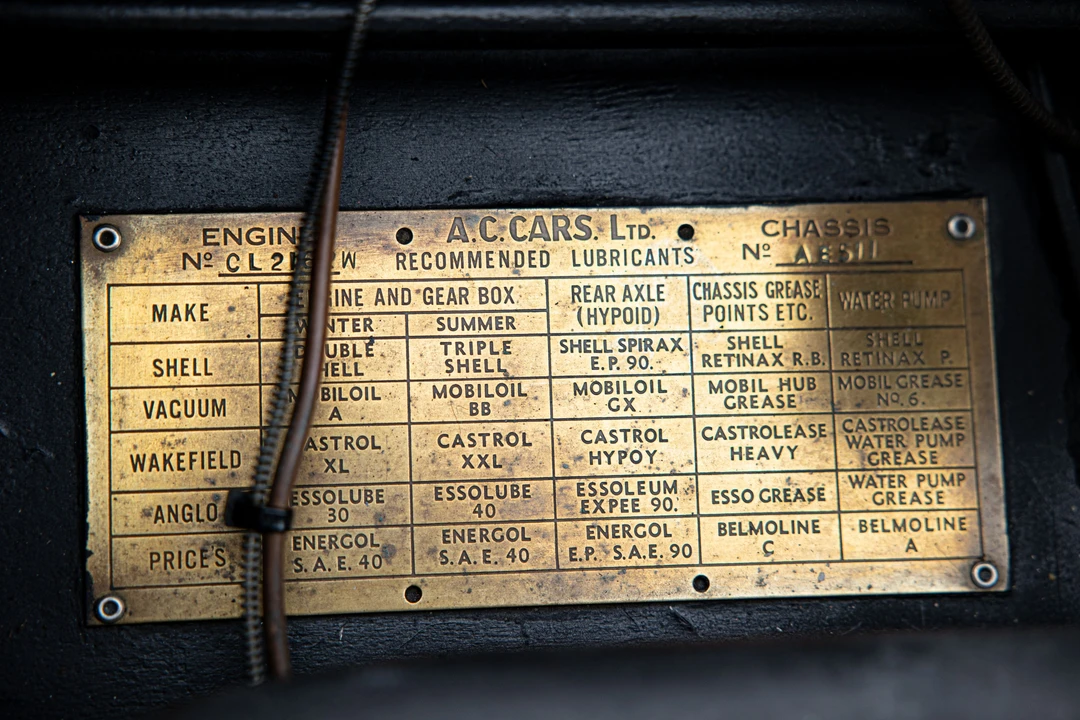 A.C.CARS. LTD.
CHASSIS
Nº CL2
RECOMMENDED LUBRICANTS
Nº
MAKE
AND GEAR BOX
REAR AXLE
(HYPOID)
CHASSIS GREASE
POINTS ETC.
WATER PUMP
SUMMER
SHELL
TRIPLE
SHELL
SHELL SPIRAX
E.P. 90.
SHELL
RETINAX R.B.
SHELL
RETINAX P.
VACUUM
A
MOBILOIL
BB
MOBILOIL
GX
MOBIL HUB
GREASE
MOBIL GREASE
Nº 6.
WAKEFIELD
XL
CASTROL
XXL
CASTROL
HYPOY
CASTROLEASE
HEAVY
CASTROLEASE
WATER PUMP
GREASE
ANGLO
ESSOLUBE
30
ESSOLUBE
40
ESSOLEUM
EXPEE 90.
ESSO GREASE
WATER PUMP
GREASE
PRICE'S
ENERGOL
S.A.E. 40
ENERGOL
S.A.E. 40
ENERGOL
E.P. S.A.E. 90
BELMOLINE
C
BELMOLINE
A